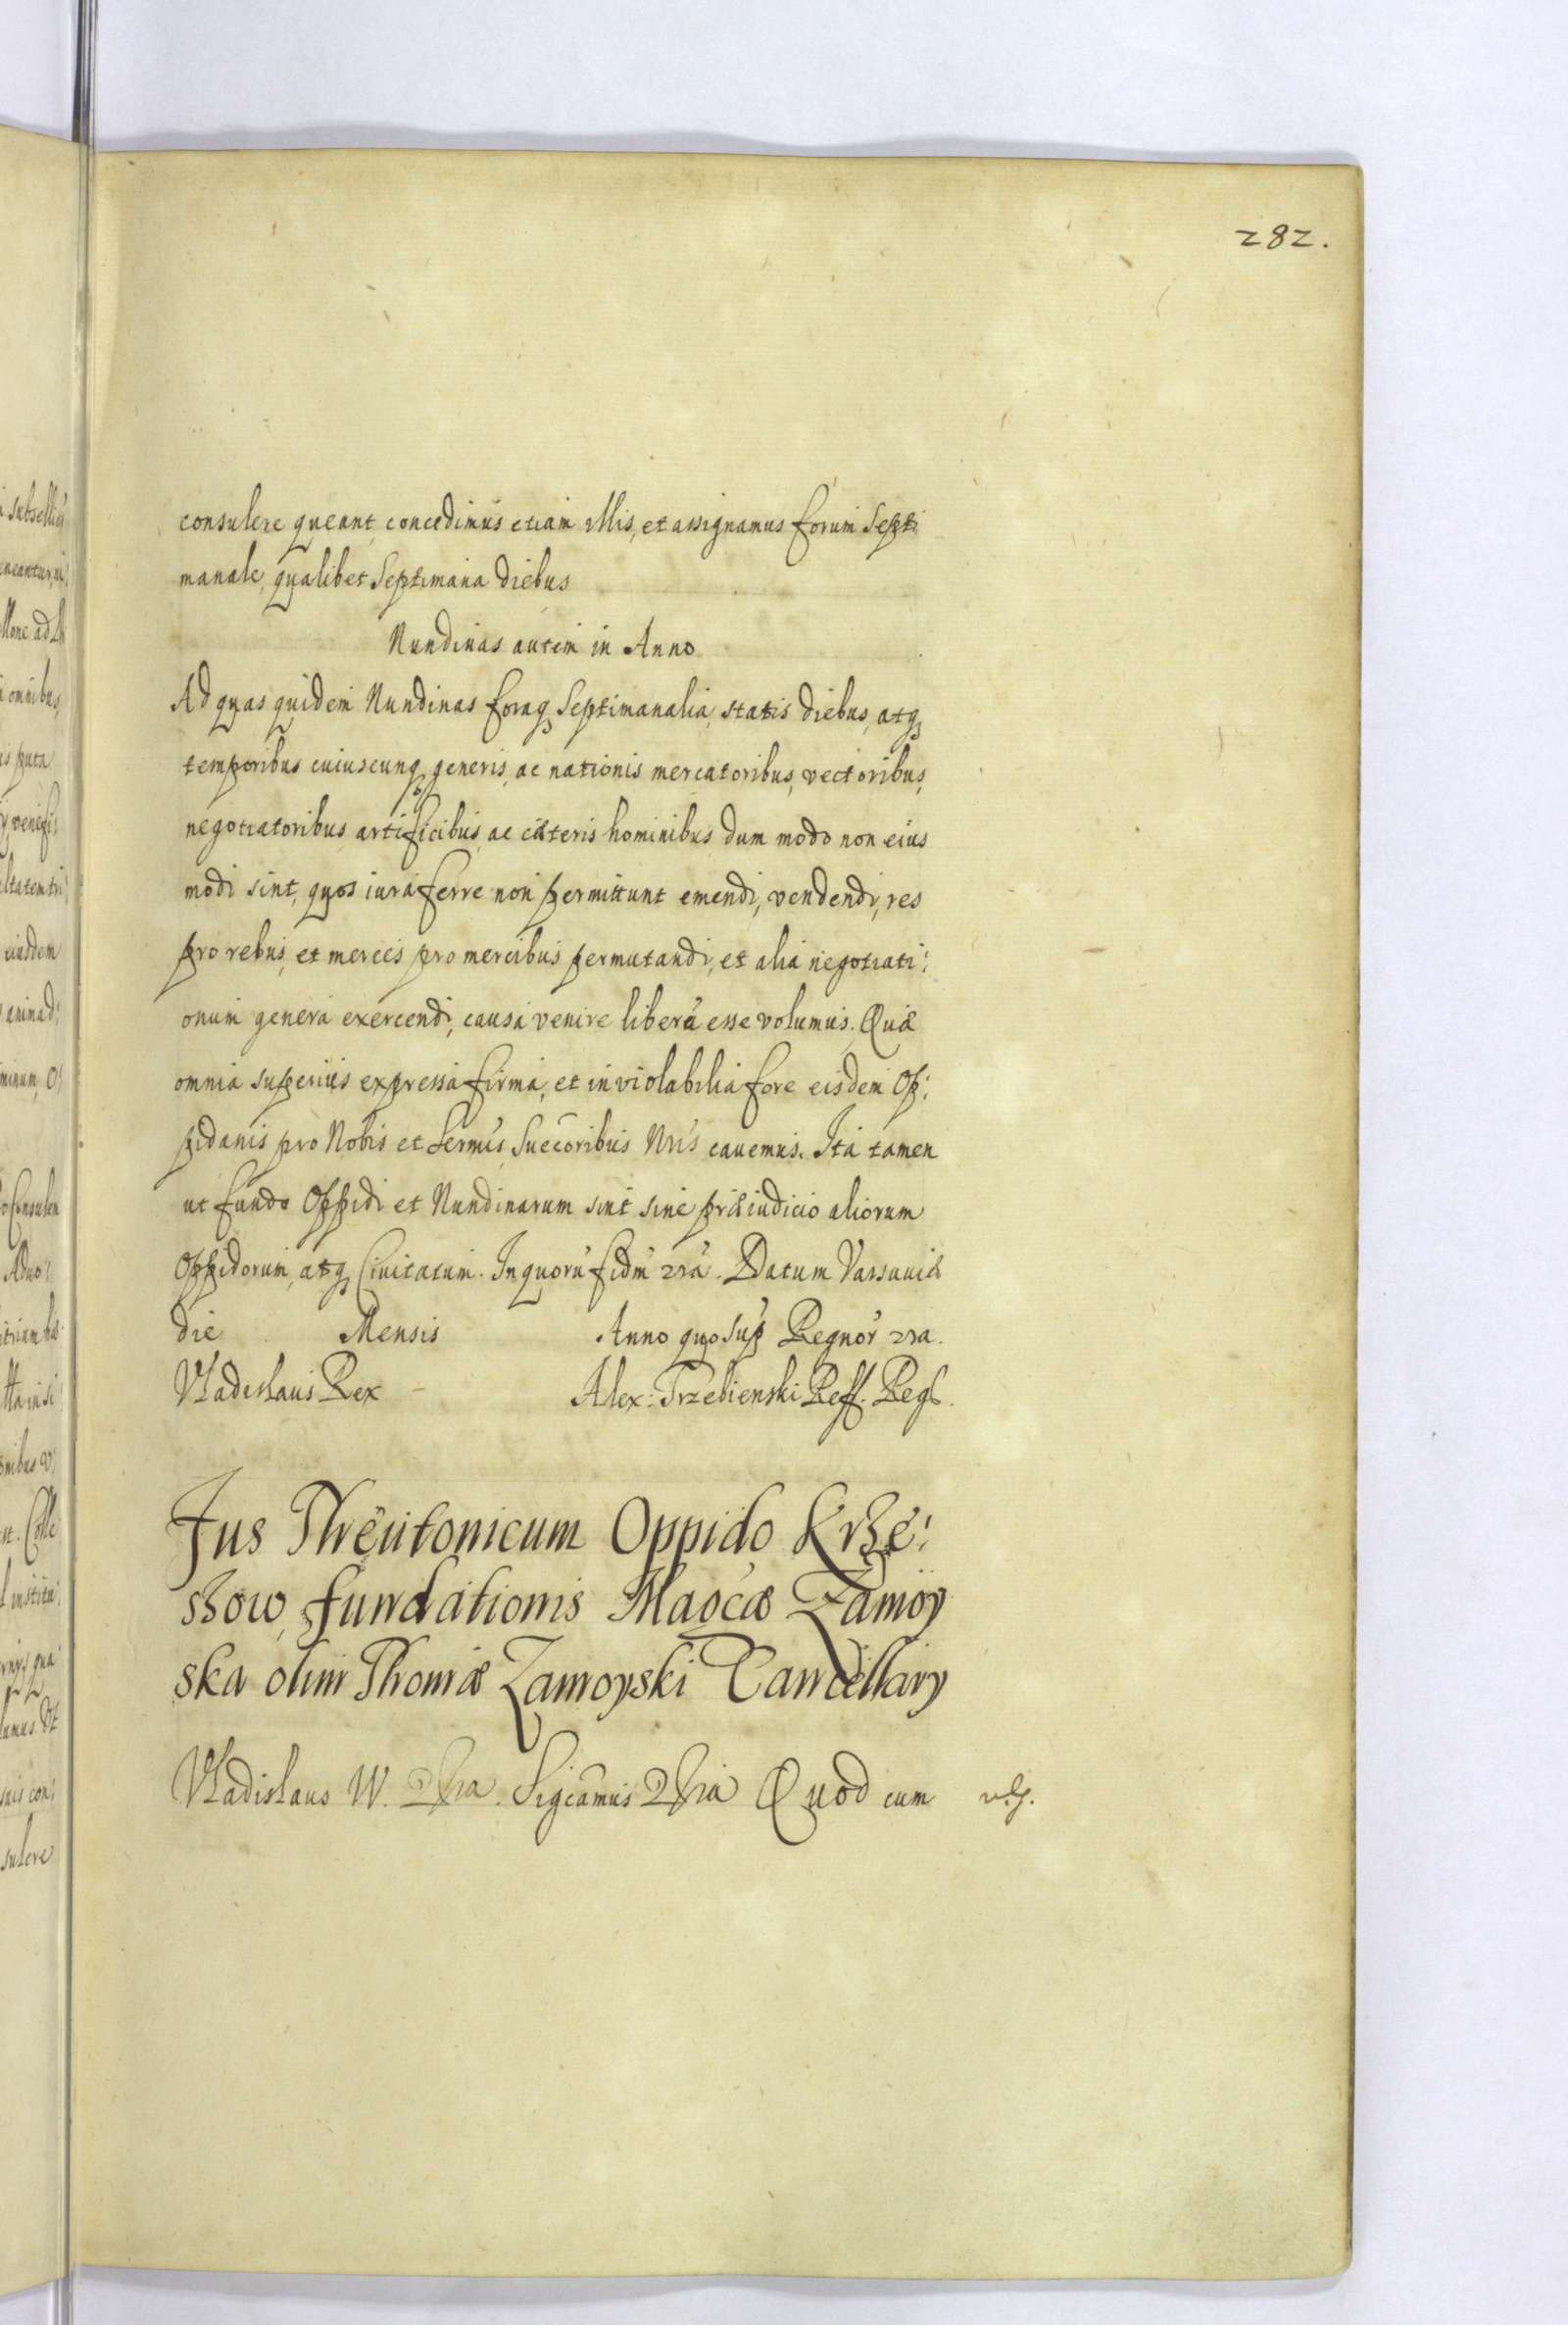 282.
consulere queant, concedimus etiam illis, et assignamus forum Septi
manale, qualibet Septimana diebus
Nundinas autem in Anno
Ad quas quidem Nundinas foraq3 Septimanalia, statis diebus, atq3
temporibus cuiuscunq3 generis, ac nationis mercatoribus, vectoribus,
negotiatoribus artificibus, ac cæteris hominibus dum modo non eius
modi sint, quos iura ferre non permittunt emendi, vendendi, res
pro rebus, et merces pro mercibus permutandi, et alia negotiati:
onum genera exercendi, causa venire liberũ esse volumus. Quæ
omnia superius expressa firma, et inviolabilia fore eisdem Op:
pidanis pro Nobis et Sermis Succoribus Nris cavemus. Ita tamen
ut fundo Oppidi et Nundinarum sint sine præiudicio aliorum
Oppidorum, atq3 Civitatum. In quorũ fidm 2ra. Datum Varsaviæ
die Mensis Anno quo sup Regnor 2ra.
Vladislaus Rex Alex: Trzebienski Reff. Regs.
Jus Theutonicum Oppido Krze:
szow, fundationis Magcæ Zamoy
ska olim Thomæ Zamoyski Cancellary
Vladislaus W. 2ra. Sigcamus 2ra Quod cum
subselliis
omnibus
puta
eiusdem
animad:
Consulen
sulere